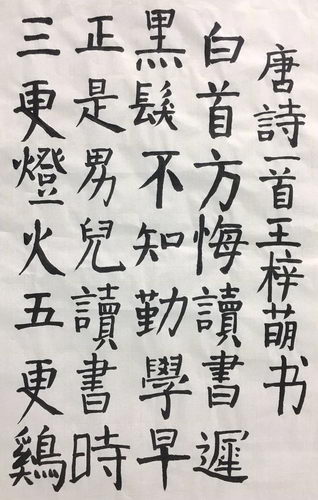 三更燈火五更鷄
正是男兒讀書時
黑髮不知勤學早
白首方悔讀書遲
唐詩一首王梓萌书